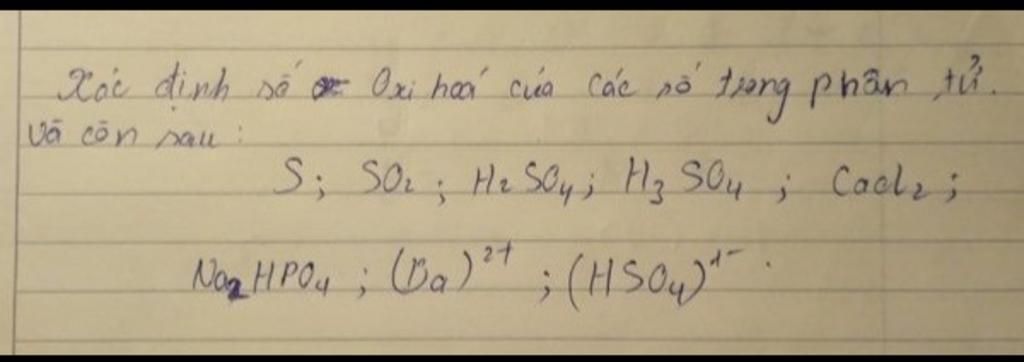 Xác định số Oxi hoá của các số trong phân tử.
và còn sau :
S; SO₂; H₂SO₄; H₃SO₄; CaCl₂;
Na₂HPO₄; (Ba)²⁺; (HSO₄)¹⁻.